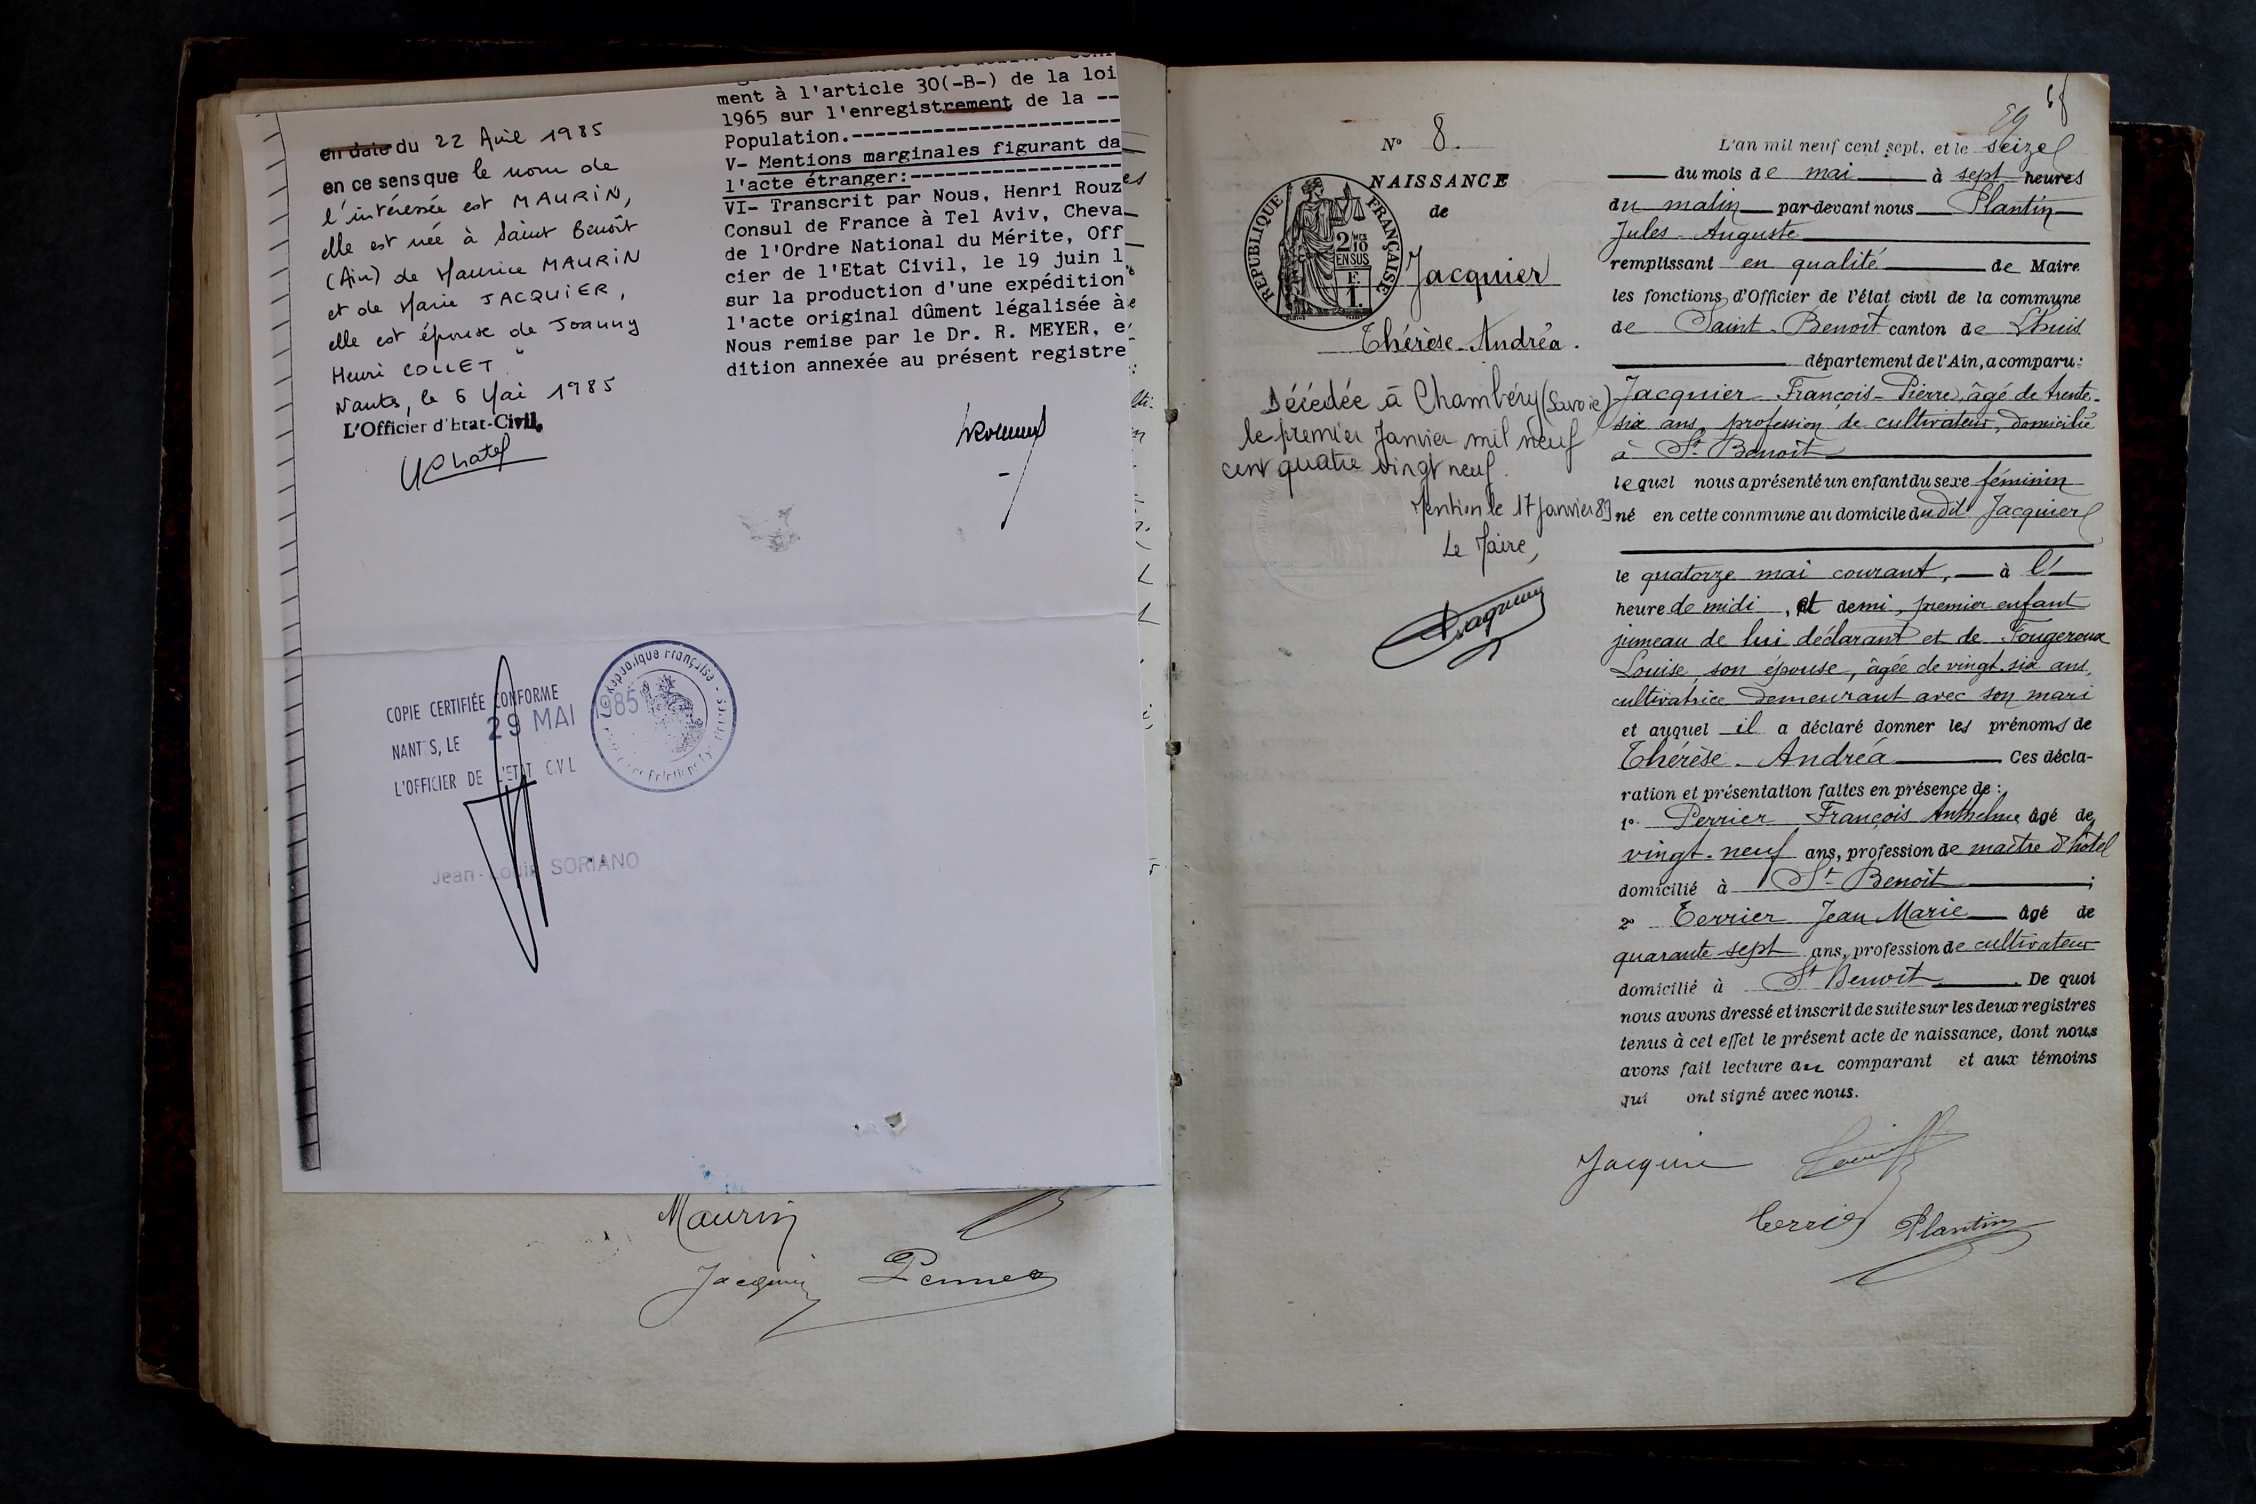 en date du 22 Avril 1985
en ce sens que le nom de
l'intéressée est MAURIN,
elle est née à Saint Benoît
(Ain) de Maurice MAURIN
et de Marie JACQUIER,
elle est épouse de Joanny
Henri COLLET "
Nantes, le 6 Mai 1985
L'Officier d'Etat-Civil,
ment à l'article 30(-B-) de la loi
1965 sur l'enregistrement de la --
Population.-----------------------
V- Mentions marginales figurant da
l'acte étranger:------------------
VI- Transcrit par Nous, Henri Rouz
Consul de France à Tel Aviv, Cheva
de l'Ordre National du Mérite, Off
cier de l'Etat Civil, le 19 juin 1
sur la production d'une expédition
l'acte original dûment légalisée à
Nous remise par le Dr. R. MEYER, e
dition annexée au présent registre
COPIE CERTIFIÉE CONFORME
NANT S, LE 29 MAI 1985
L'OFFICIER DE L'ETAT C.V L
République Française
Jean-Louis SORIANO
Maurin
Jacquier
68
59
N° 8.
NAISSANCE
de
RÉPUBLIQUE FRANÇAISE
2/10
EN SUS
F.
1.
Jacquier
Thérèse-Andréa.
Décédée à Chambéry (Savoie)
le premier Janvier mil neuf
cent quatre vingt neuf.
Mention le 17 Janvier 89
Le Maire,
L'an mil neuf cent sept, et le seize
du mois de mai à sept heures
du matin par-devant nous Plantin
Jules-Auguste
remplissant en qualité de Maire
les fonctions d'Officier de l'état civil de la commune
de Saint-Benoit canton de Lhuis
département de l'Ain, a comparu:
Jacquier François-Pierre, âgé de trente-
six ans, profession de cultivateur, domicilié
à St Benoit
lequel nous a présenté un enfant du sexe féminin
né en cette commune au domicile dudit Jacquier
le quatorze mai courant, à l'
heure de midi, et demi, premier enfant
jumeau de lui déclarant et de Fougeroux
Louise, son épouse, âgée de vingt-six ans,
cultivatrice demeurant avec son mari
et auquel il a déclaré donner les prénoms de
Thérèse-Andréa Ces décla-
ration et présentation faites en présence de:
1° Perrier François Anthelme âgé de
vingt-neuf ans, profession de maître d'hôtel
domicilié à St Benoit ;
2° Terrier Jean Marie âgé de
quarante sept ans, profession de cultivateur
domicilié à St Benoit. De quoi
nous avons dressé et inscrit de suite sur les deux registres
tenus à cet effet le présent acte de naissance, dont nous
avons fait lecture au comparant et aux témoins
qui ont signé avec nous.
Jacquier
Terrier Plantin